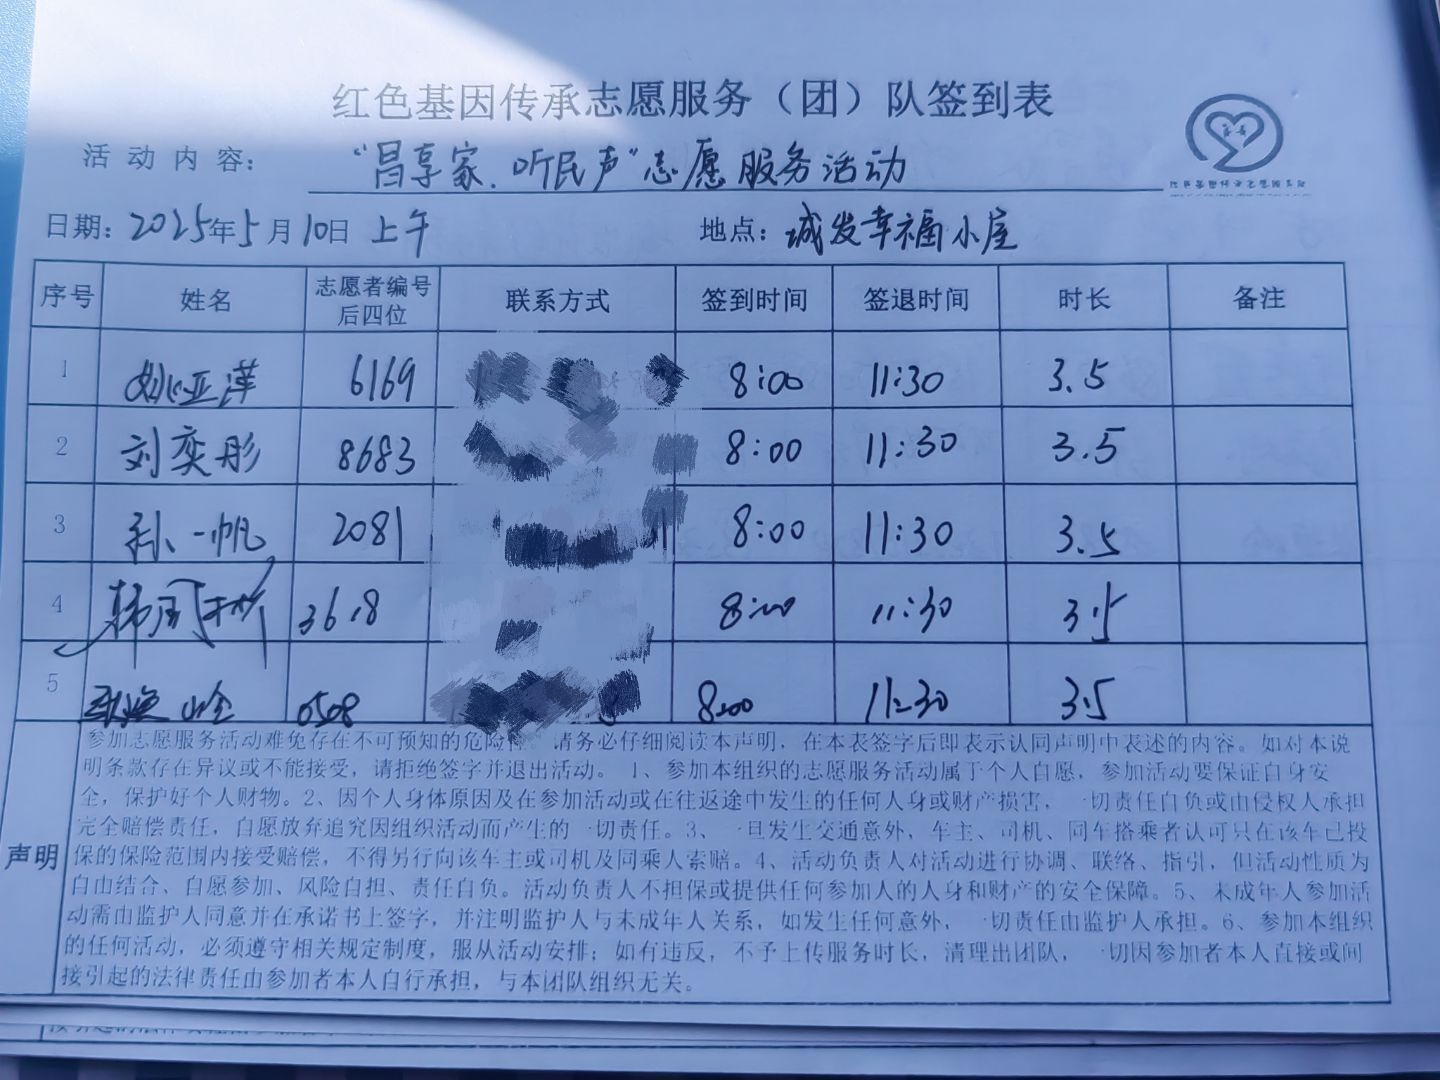 红色基因传承志愿服务（团）队签到表
活动内容： “昌享家.听民声”志愿服务活动
日期：2025年5月10日 上午 地点：城发幸福小屋
序号 姓名 志愿者编号后四位 联系方式 签到时间 签退时间 时长 备注
1 姚亚萍 6169 8:00 11:30 3.5
2 刘奕彤 8683 8:00 11:30 3.5
3 孙一帆 2081 8:00 11:30 3.5
4 3618 8:00 11:30 3.5
5 0508 8:00 11:30 3.5
声明
参加志愿服务活动难免存在不可预知的危险性，请务必仔细阅读本声明，在本表签字后即表示认同声明中表述的内容。如对本说
明条款存在异议或不能接受，请拒绝签字并退出活动。 1、参加本组织的志愿服务活动属于个人自愿，参加活动要保证自身安
全，保护好个人财物。2、因个人身体原因及在参加活动或在往返途中发生的任何人身或财产损害，一切责任自负或由侵权人承担
完全赔偿责任，自愿放弃追究因组织活动而产生的一切责任。3、一旦发生交通意外，车主、司机、同车搭乘者认可只在该车已投
保的保险范围内接受赔偿，不得另行向该车主或司机及同乘人索赔。4、活动负责人对活动进行协调、联络、指引，但活动性质为
自由结合、自愿参加、风险自担、责任自负。活动负责人不担保或提供任何参加人的人身和财产的安全保障。5、未成年人参加活
动需由监护人同意并在承诺书上签字，并注明监护人与未成年人关系，如发生任何意外，一切责任由监护人承担。6、参加本组织
的任何活动，必须遵守相关规定制度，服从活动安排；如有违反，不予上传服务时长，清理出团队，一切因参加者本人直接或间
接引起的法律责任由参加者本人自行承担，与本团队组织无关。